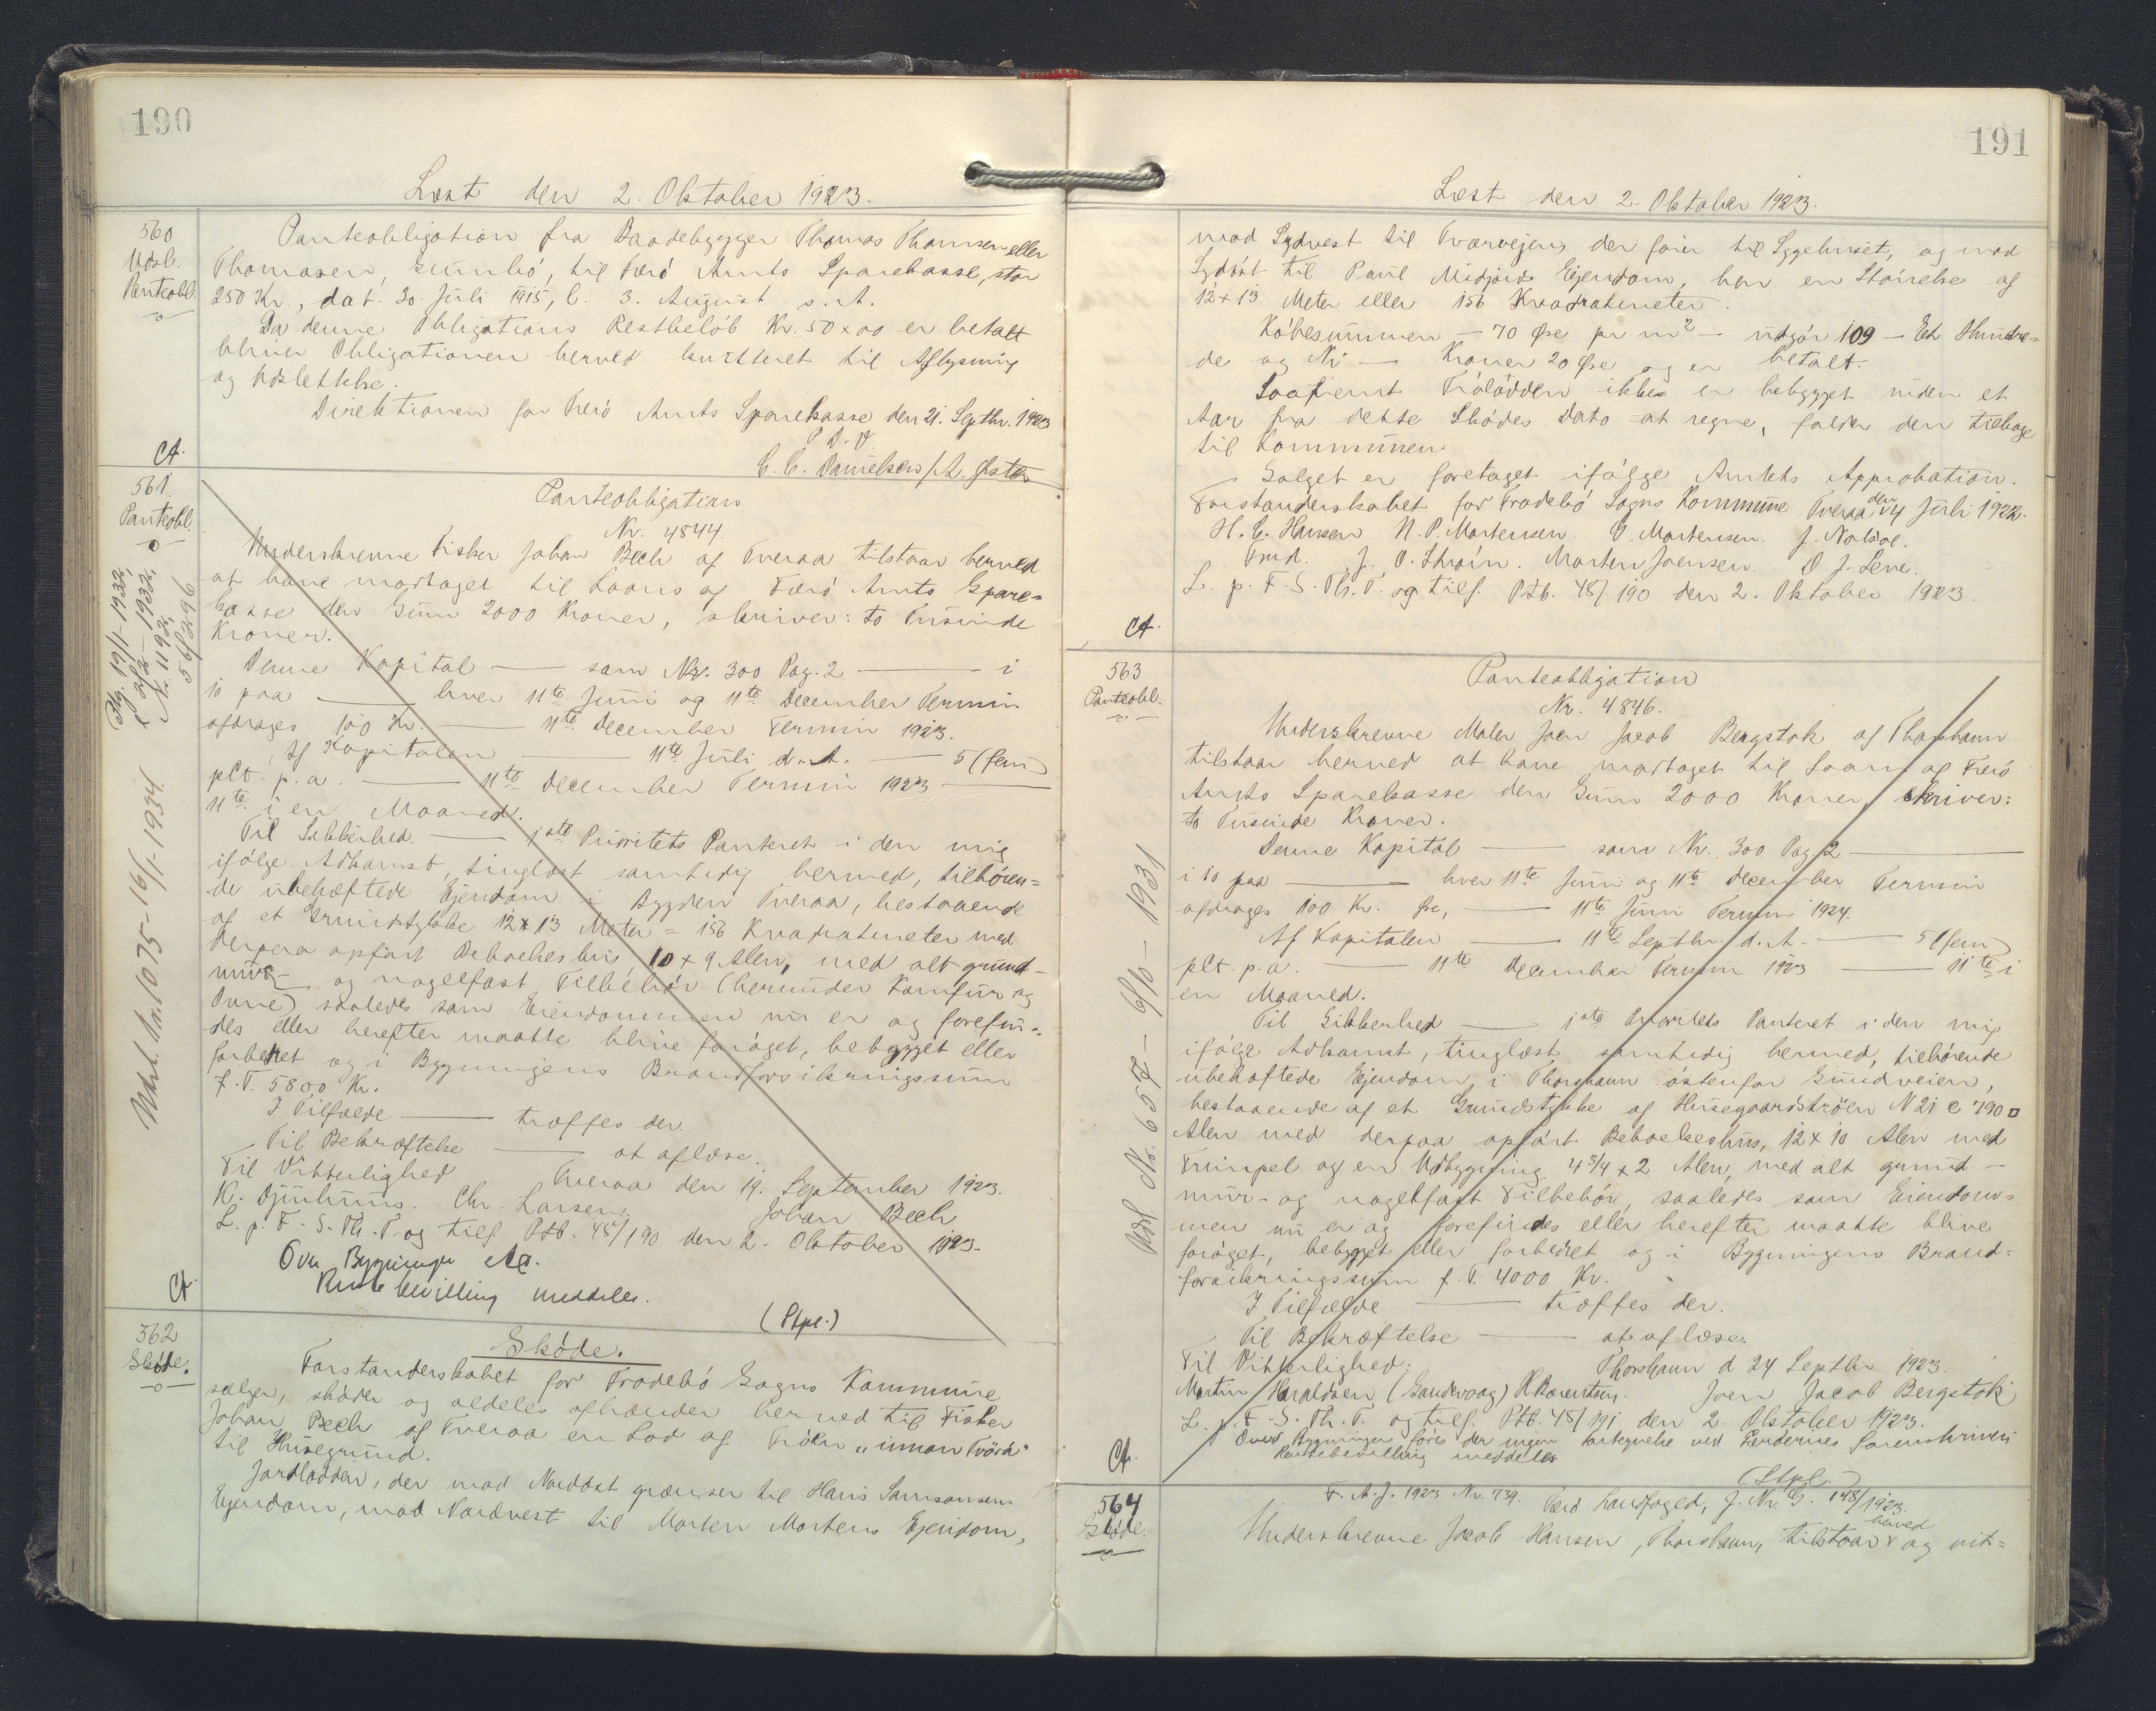 190
Læst den 2. Oktober 1923.
560
Udsl.
Panteobl.
Panteobligation fra Baadebygger Thomas Thomsen eller
Thomasen, Sumbö, til Færö Amts Sparekasse, stor
250 Kr., dat. 30. Juli 1915, l. 3. August s. A.
Da denne Obligations Restbelöb Kr. 50 x 00 er betalt
bliver Obligationen herved kvitteret til Aflysning
og Udslettelse.
Direktionen for Færö Amts Sparekasse den 21. Septbr. 1923
P. D. V.
C. C. Danielsen / A. Öster
561.
Panteobl.
Panteobligation
Nr. 4844.
Underskrevne Fisker Johan Bech af Tveraa tilstaar herved
at have modtaget til Laans af Færö Amts Spare=
kasse den Sum 2000 Kroner, skriver: to Tusinde
Kroner.
Denne Kapital — som Nr. 300 Pag. 2 — i
10 paa — hver 11te Juni og 11te December Termin
afdrages 100 Kr. — 11te December Termin 1923.
Af Kapitalen — 11te Juli d. A. — 5 (fem)
pCt. p. a. — 11te December Termin 1923 —
11te i en Maaned.
Til Sikkerhed — 1ste Prioritets Panteret i den mig
ifölge Adkomst, tinglæst samtidig hermed, tilhören=
de ubehæftede Ejendom i Bygden Tveraa, bestaaende
af et Grundstykke 12 x 13 Meter = 156 Kvadratmeter med
derpaa opfört Beboelseshus 10 x 9 Alen, med alt grund-
mur- og nagelfast Tilbehör (herunder Komfur og
Ovne) saaledes som Eiendommen nu er og forefin=
des eller herefter maatte blive foröget, bebygget eller
forbedret og i Bygningens Brandforsikringssum
f. T. 5800 Kr.
I Tilfælde — træffes der.
Til Bekræftelse — at aflæse.
Til Vitterlighed Tveraa den 19. September 1923.
K. Djurhuus. Chr. Larsen. Johan Bech
L. p. F. S. Th. T. og tilf. Ptb. 45/190 den 2. Oktober 1923.
Over Bygningen
Rentebevilling meddeles.
(Stpl.)
Udsl. No. 1075 - 16/1-1934
562
Sköde.
Sköde.
Forstanderskabet for Frodebö Sogns Kommune
sælger, sköder og aldeles afhænder herved til Fisker
Johan Bech af Tveraa en Lod af Tröen „innan Tvörá"
til Husegrund.
Jordlodden, der mod Nordöst grænser til Hans Samsonsens
Ejendom, mod Nordvest til Morten Mortens Ejendom,
191
Læst den 2. Oktober 1923.
mod Sydvest til Tværvejen, der förer til Sygehuset, og mod
Sydöst til Paul Midjords Ejendom, har en Störrelse af
12 x 13 Meter eller 156 Kvadratmeter.
Köbesummen — 70 Öre pr m2 — udgör 109 — Et Hundre=
de og Ni — Kroner 20 Öre og er betalt.
Saafremt Trölodden ikke er bebygget inden et
Aar fra dette Sködes Dato at regne, falder den tilbage
til Kommunen.
Salget er foretaget ifölge Amtets Approbation.
Forstanderskabet for Frodebö Sogns Kommune Tveraa den 4 Juli 1922.
H. C. Hansen N. P. Mortensen. G. Mortensen. J. Nolsøe.
Fmd. J. O. Morten Joensen. O. J. Lene.
L. p. F. S. Th. T. og tilf. Ptb. 45/190 den 2. Oktober 1923.
563
Panteobl.
Panteobligation
Nr. 4846.
Underskrevne Maler Joen Jacob Bergstok af Thorshavn
tilstaar herved at have modtaget til Laans af Færö
Amts Sparekasse den Sum 2000 Kroner, skriver:
to Tusinde Kroner.
Denne Kapital — som Nr. 300 Pag. 2 —
i 10 paa — hver 11te Juni og 11te December Termin
afdrages 100 Kr. Öre, — 11te Juni Termin 1924.
Af Kapitalen — 11te Septbr. d. A. — 5 (fem)
pCt. p. a. — 11te December Termin 1923 — 11te i
en Maaned.
Til Sikkerhed — 1ste Prioritets Panteret i den mig
ifölge Adkomst, tinglæst samtidig hermed, tilhörende
ubehæftede Ejendom i Thorshavn östenfor Sundveien,
bestaaende af et Grundstykke af Husegaardströen N 21 e 790 □
Alen med derpaa opfört Beboelseshus, 12 x 10 Alen med
Trempel og en Udbygning 4 3/4 x 2 Alen, med alt grund-
mur- og nagelfast Tilbehör, saaledes som Eiendom=
men nu er og forefindes eller herefter maatte blive
foröget, bebygget eller forbedret og i Bygningens Brand=
forsikringssum f. T. 4000 Kr.
I Tilfælde — træffes der.
Til Bekræftelse — at aflæse.
Til Vitterlighed. Thorshavn d 24 Septbr 1923.
Martin Haraldsen (Sandevaag) Joen Jacob Bergstok
L. p. F. S. Th. T. og tilf. Ptb. 45/191 den 2. Oktober 1923.
Over Bygningen föres der ingen Fortegnelse ved Færöernes Sorenskriveri
Rentebevilling meddeles
(Stpl.)
564
Sköde.
F. A. J. 1923 Nr. 739. Færö Landfoged, J. Nr. G. 148/1923.
Underskrevne Jacob Hansen, Thorshavn, tilstaar herved og vit=